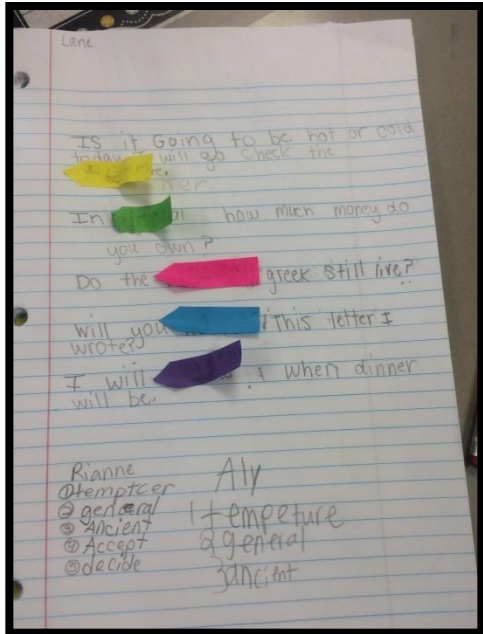 Lane
IS it Going to be hot or cold
today I will go check the
In how much money do
you own?
Do the greek still live?
Will you This letter I
wrote?
I will when dinner
will be.
Rianne
① temptcer
② general
③ Ancient
④ Accept
⑤ dacide
Aly
1 tempeture
2 general
3 ancient